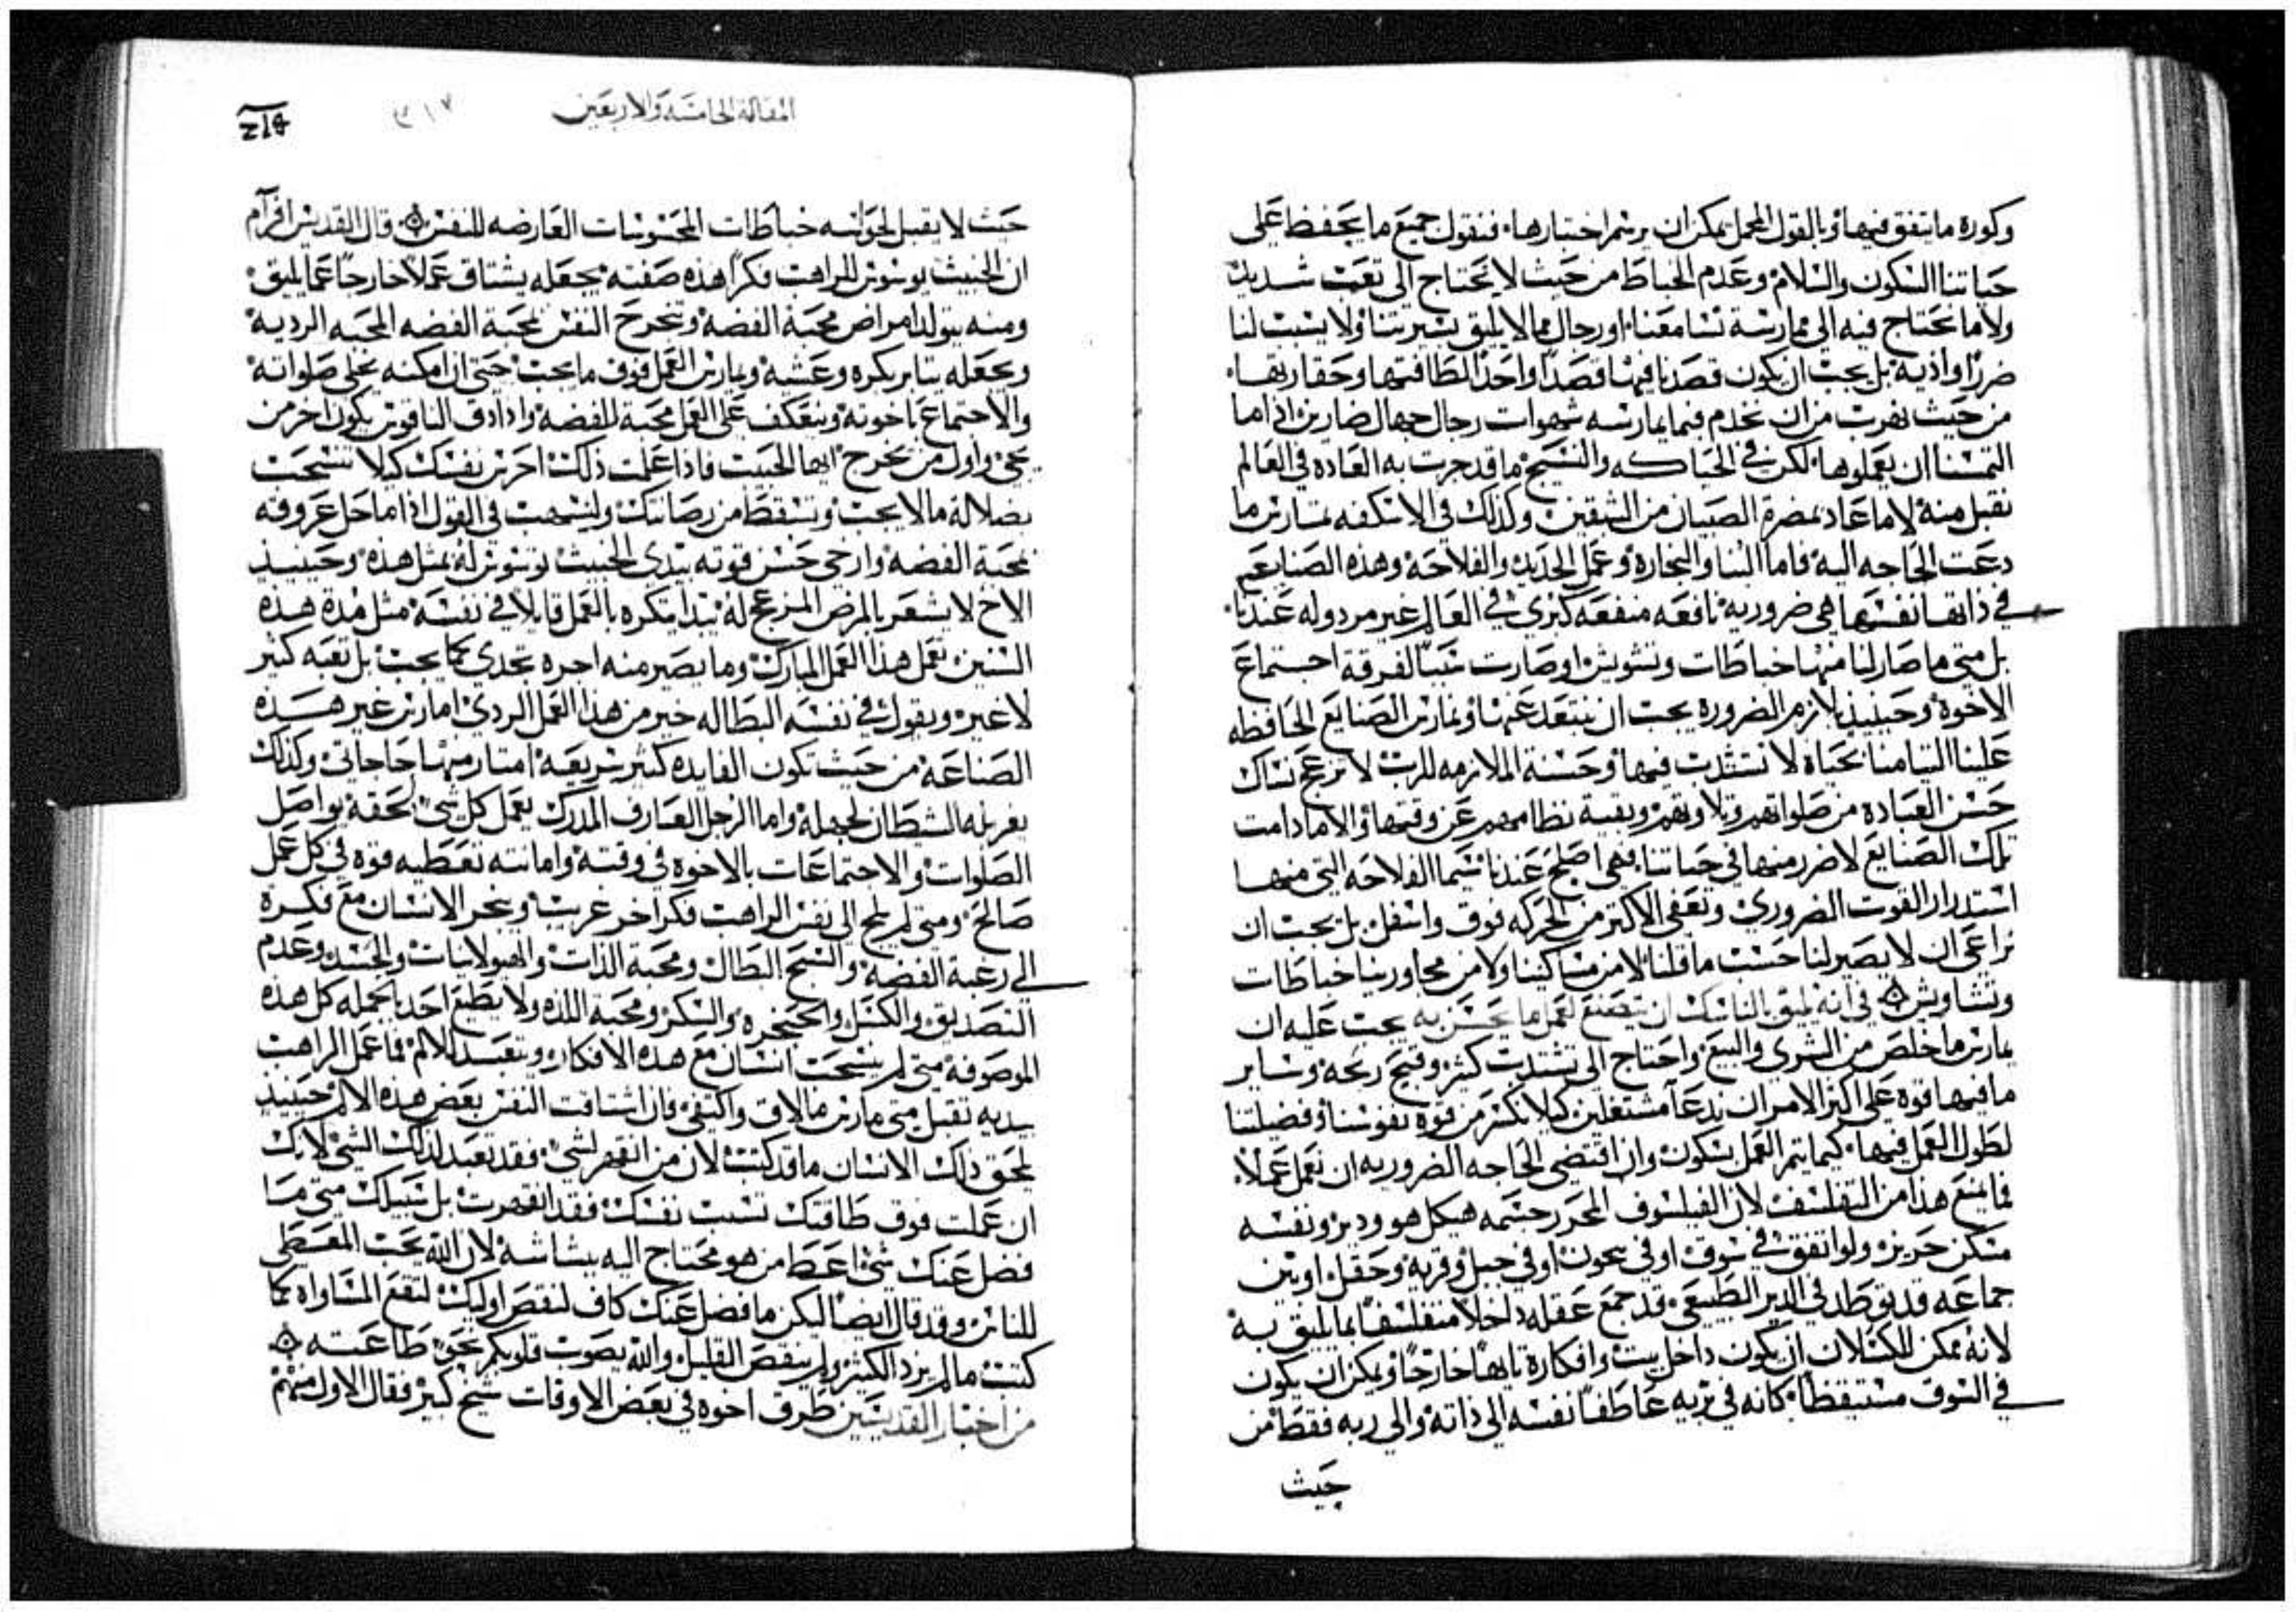 وكورة ما يتفق فيها وبالقول المجمل يمكن ان يرسم اختبارها فنقول جميع ما يحفظ على
حياتنا السكون والسلام وعدم الخباط من حيث لا نحتاج الى تعب شديد
ولا ما نحتاج فيه الى ممارسة نسا معنا او رجال مما لا يليق بسيرتنا ولا يسبب لنا
ضررًا واذية بل يجب ان يكون قصدنا فيها قصدًا واحدًا لطافتها وحقارتها
من حيث نهرب من ان نخدم فيما يمارسه شهوات رجال جهال ضارين اذا ما
التمسنا ان يعملوها لكن في الحياكه والنسيج ما قد جرت به العاده في العالم
نقبل منه لا ما عاد بمضرة الصبيان من الشبقين وكذلك في الاسكفه نمارس ما
دعت الحاجه اليه فاما البنا والنجارة وعمل الحديد والفلاحة وهذه الصنايع هي
في ذاتها نفسها هي ضرورية نافعه منفعه كبرى في العالم غير مردوله عندنا
بل متى ما صار لنا منها خباطات وتشويش او صارت سببًا لفرقة اجتماع
الاخوة وحينيذ لازم الضرورة يجب ان نبتعد عنها ونمارس الصنايع الحافظه
علينا التيامنا بحياه لا نتشتت فيها وحسنة الملازمه للرب لا تزعج نساك
حسن العبادة من صلواتهم وتلاوتهم وبقية نظامهم عن وقتها والا ما دامت
تلك الصنايع لا ضرر منها في حياتنا فهي اصلح عندنا سيما الفلاحه التي منها
استدرار القوت الضروري وتعفي الاكتر من الحركه فوق واسفل بل يجب ان
نراعي ان لا يصير لنا حسب ما قلنا لا من مساكنينا ولا من مجاورينا خباطات
وتشاويش في انه يليق بالناسك ان يتصنع لعمل ما يحسن به يجب عليه ان
يمارس ما خلص من الشري والبيع واحتاج الى تشتت كثير وقبيح ربحه وساير
ما فيها قوة على اكثر الامر ان ندعا مشتغلين كيلا يكسر من قوة نفوسنا وفضيلتنا
لطول العمل فيها كيما يتم العمل بسكون وان اقتضى الحاجه الضروريه ان نعمل عملًا
فما يمنع هذا من التفلسف لان الفيلسوف المحرر جسمه هيكل هو ودير ونفسه
مسكن حريز ولو اتفق في سوق او في سجون او في جبل وقرية وحقل او بين
جماعه قد توطد في الدير الطبيعي قد جمع عقله داخلًا متفلسفًا بما يليق به
لانه يمكن للكسلان ان يكون داخل بيت وافكاره تايها خارجًا ويمكن ان يكون
في السوق مستيقظًا كانه في بريه عاطفًا نفسه الى ذاته والى ربه فقط من
حيث
المقالة الخامسة والاربعين
٣١٧
حيث لا يقبل لحواسه خباطات المحسوسات العارضه للنفس قال القديس افرآم
ان الخبيث يوسوس للراهب فكرًا هذه صفته يجعله يشتاق عملًا خارجًا عما يليق
ومنه يتولد امراض محبة الفضة وتنجرح النفس بمحبة الفضه المحبه الردية
ويجعله يثابر بكره وعشية ويمارس العمل فوق ما يجب حتى ان امكنه يخلي صلواته
والاجتماع باخوته ويعتكف على العمل محبة للفضة واذا دق الناقوس يكون اخر من
يجي واول من يخرج ايها الحبيب فاذا عملت ذلك احرس نفسك كيلا تنسحب
بضلالة ما لا يجب وتسقط من رصانتك ولنسهب في القول اذا ما حل عروقه
بمحبة الفضة وارخى حسن قوته يبتدي الخبيث يوسوس له بمثل هذه وحينيذ
الاخ لا يشعر بالمرض المزعج له يبتدا يتكره بالعمل قايلًا في نفسه مثل مدة هذه
السنين نعمل هذا العمل المبارك وما يصير منه اجرة تجدي كما يجب بل تعبه كثير
لا غير ويقول في نفسه البطاله خير من هذا العمل الردي امارس غير هذه
الصناعة من حيث تكون الفايده كثير سريعه امتار منها حاجاتي وكذلك
يغربله الشيطان لجهله واما الرجل العارف المدرك يعمل كل شي بحقه يواصل
الصلوات والاجتماعات بالاخوه في وقته وامانته تعطيه قوة في كل عمل
صالح ومتى لم يلج الى نفس الراهب فكرًا اخر غريب وينجر الانسان مع فكرة
الى رغبة الفضة والسبح البطال ومحبة الذات والهيولانيات والجسد وعدم
التصديق والكسل والحنجره والسكر ومحبة اللذه ولا يطيع احد بالجمله كل هذه
الموصوفة متى لم ينسحب انسان مع هذه الافكار ويتعبد للالم فما عمل الراهب
بيديه تقبل متى مارس ما لاق واكتفى فان اشتاقت النفس بعض هذه الالام حينيذ
يلحق ذاك الانسان ما قد كتب لان من انقهر لشي فقد تعبد لذلك الشي لانك
ان عملت فوق طاقتك نسيت نفسك فقد انقهرت بل سبيلك متى ما
فضل عنك شيًا اعط من هو محتاج اليه ببشاشه لان الله يحب المعطي
للناس وقد قال ايضًا ليكن ما فضل عنك كاف لنقص اوليك لتقع المساواه كما
كتب ما لم يزد الكثير ولم ينقص القليل والله يصوب قلوبكم نحو طاعته
من اخبار القديسين طرق اخوه في بعض الاوقات شيخ كبير فقال الاول منهم